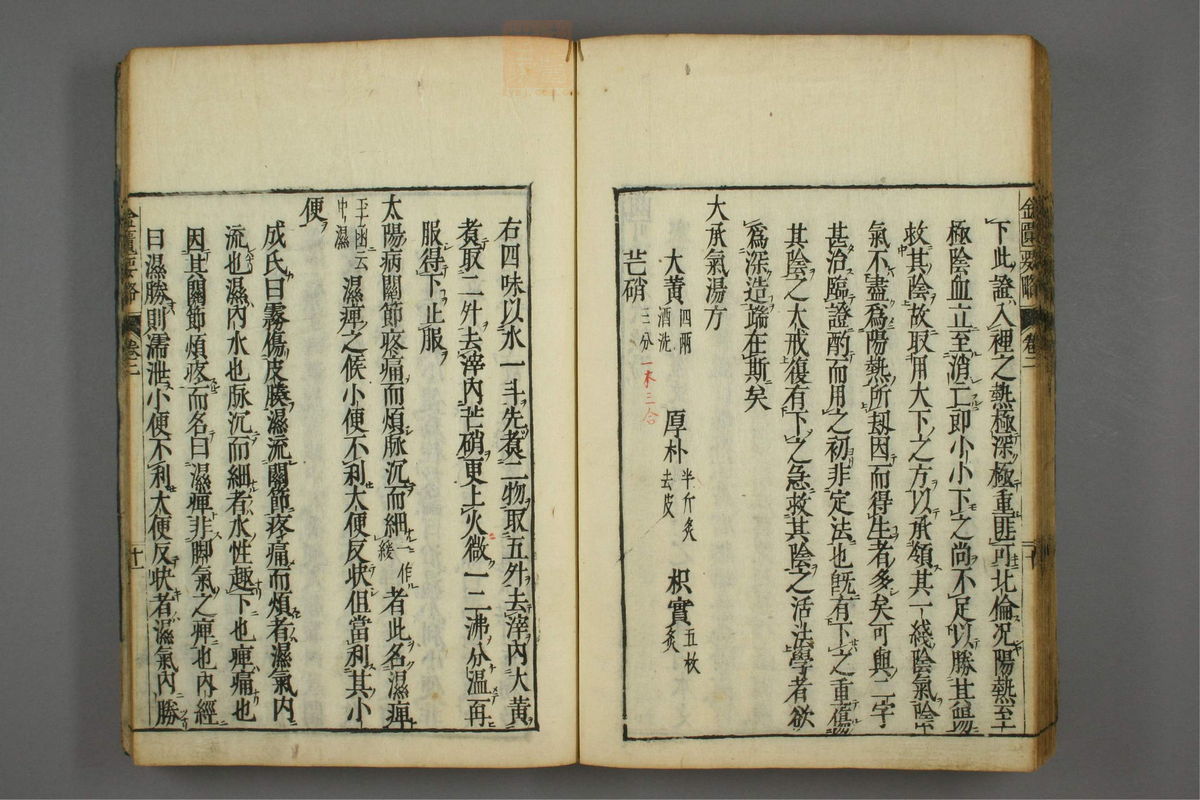 下此證入裡之熱極深極重匪可北倫况陽熱至
極陰血立至消亡即小小下之尚不足以勝其
救其陰故取用大下之方以承領其一綫陰氣陰
氣不盡爲陽熱所刼因而得生者多矣可與二字
甚治臨證酌而用之初非定法也旣有下之重傷
其陰之大戒復有下之急救其陰之活法學者欲
爲深造端在斯矣
大承氣湯方
大黃 四兩 酒洗 厚朴 半斤炙 去皮 枳實 五枚 炙
芒硝 三分 一本三合
金匱要略 卷二
右四味以水一斗先煮二物取五升去滓內大黃
煮取二升去滓內芒硝更上火微一二沸分温再
服得下止服
太陽病關節疼痛而煩脉沉而細 一作緩 者此名濕痺
玉函云中濕 濕痺之候小便不利大便反快但當利其小
便
成氏曰霧傷皮腠濕流關節疼痛而煩者濕氣內
流也濕內水也脉沉而細者水性趣下也痺痛也
因其關節煩疼而名曰濕痺非脚氣之痺也內經
曰濕勝則濡泄小便不利大便反快者濕氣內勝
金匱要略 卷二 十一